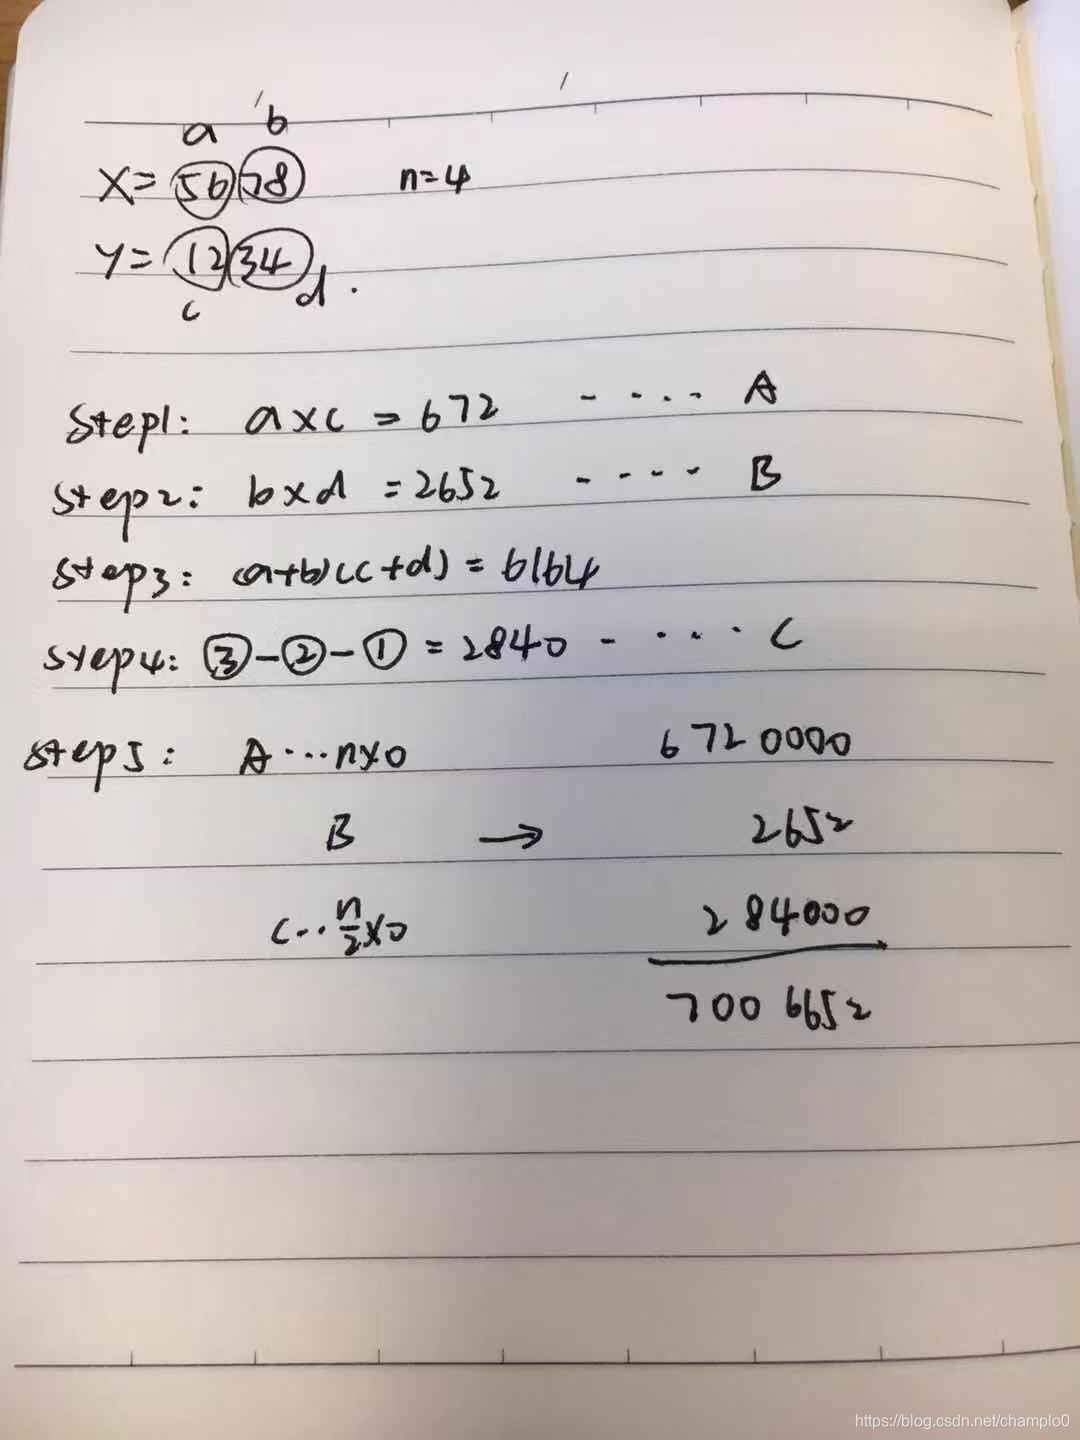 a b
X= 56 78 n=4
Y= 12 34
c d .
Step1: a×c = 672 ···· A
Step2: b×d = 2652 ···· B
Step3: (a+b)(c+d) = 6164
Step4: ③-②-① = 2840 ···· C
Step5: A···n×0 6720000
B → 2652
C··n/2×0 284000
7006652
https://blog.csdn.net/champlo0